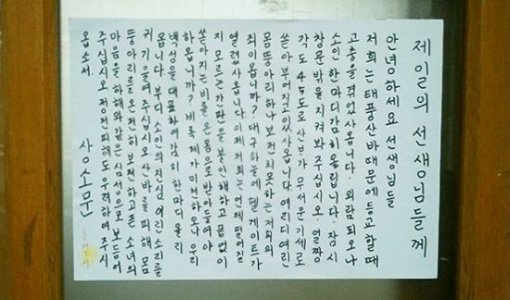 제일의 선생님들께
안녕하세요 선생님들
저희는 태풍 산바 때문에 등교할 때
고충을 겪었사옵니다. 외람되오나
소인 한마디 감히 올립니다. 잠시
창문 밖을 지켜봐 주십시오. 얼짱
각도 45도로 산바가 무서운 기세로
쏟아 부어지고 있사옵니다 여리디 여린
몸뚱아리 하나 보전치 못하는 저희의
죄이옵니까? 대구 하늘에 헬게이트가
열렸사옵니다 이제 저희는 언제 떨어질
지 모르는 간판을 불안해하고 끝없이
쏟아지는 비를 온몸으로 받아들여야
하옵니까? 비록 제가 미천하오나 우리
백성을 대표하여 감히 한마디 올리
옵니다. 부디 소인의 진심 여린 소리를
귀 기울여 주십시오 산바를 피해 몸
뚱아리를 온전히 보전하고픈 소녀의
마음을 하해와 같은 심성으로 보듬어
주십시오 정전피해도 우려하여 주시
옵소서.
상소문